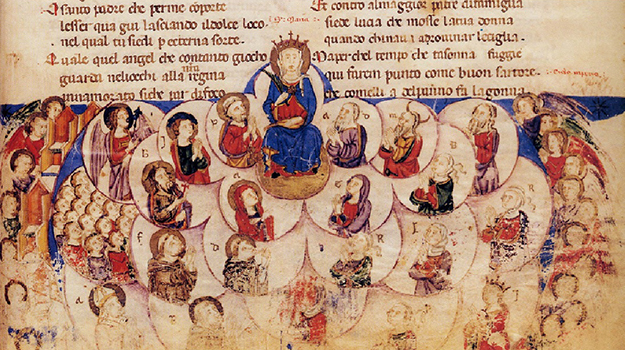 O santo padre che per me comporte
lesser qua giu lasciando ildolce loco
nel qual tu siedi p eterna sorte
Quale quel angel che contanto giocho
guarda neliocchi alla regina
innamorato siche par difoco
Maria
Et contro almaggior padre difamiglia
siede lucia che mosse latua donna
quando chinaui a rouinar leciglia
Maperchel tempo che tasonna fuggie
qui farem punto come buon sartore
che comelli a del panno fa lagonna
b
J
a
d
R
f
d
R
J